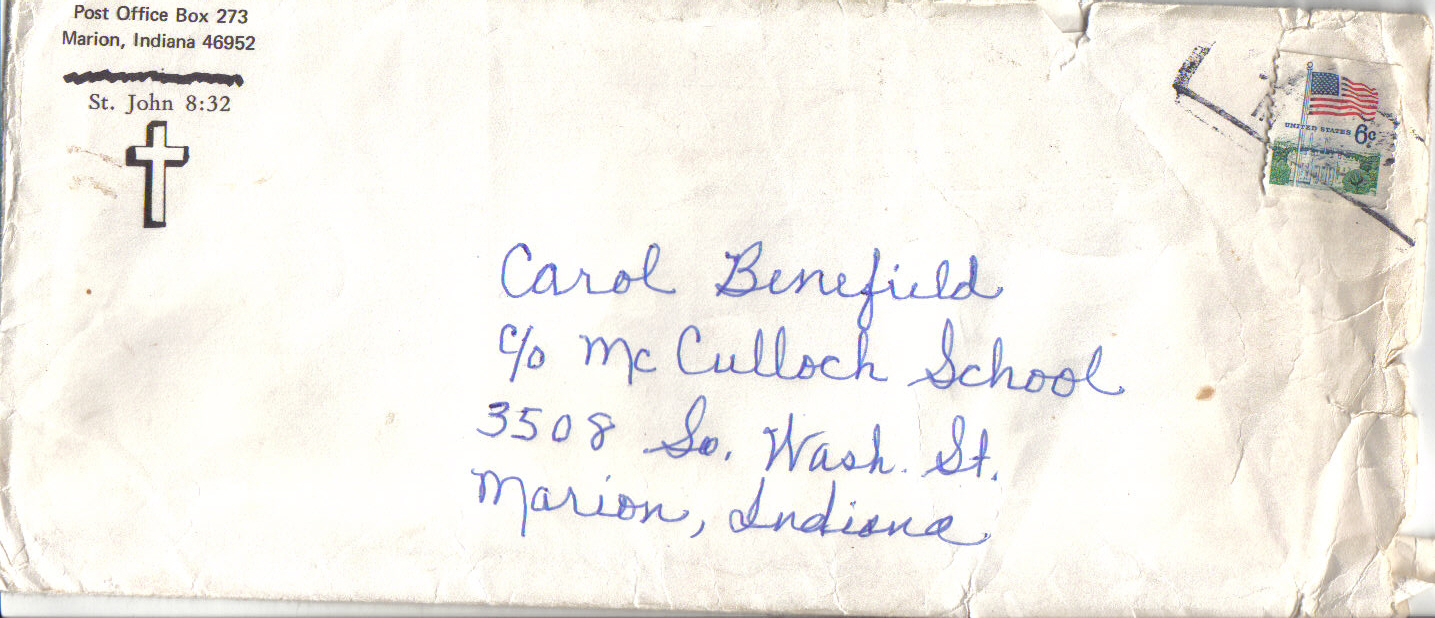 Post Office Box 273
Marion, Indiana 46952
St. John 8:32
UNITED STATES 6c
Carol Benefield
c/o McCulloch School
3508 So. Wash. St.
Marion, Indiana.